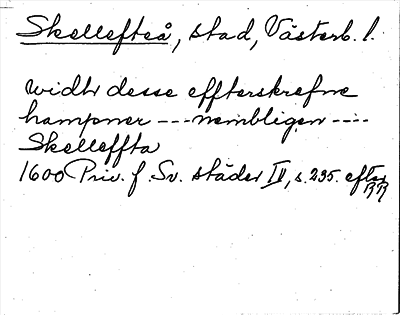 Skellefteå, stad, Västerb. l.
widh desse effterskrefne
hampner --- nembligen ----
Skelleffta
1600 Priv. f. Sv. städer IV, s. 235. efter
RR